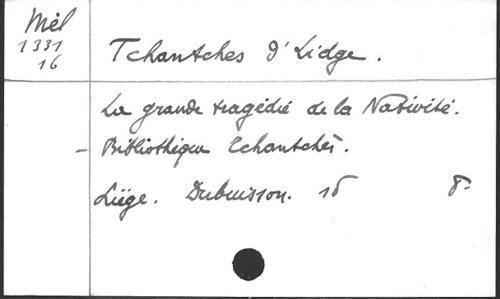 Mél
1331
16
Tchantches d'Lidge.
La grande tragédie de la Nativité.
- Bibliothèque Tchantchès.
Liège. Dubuisson. 8°